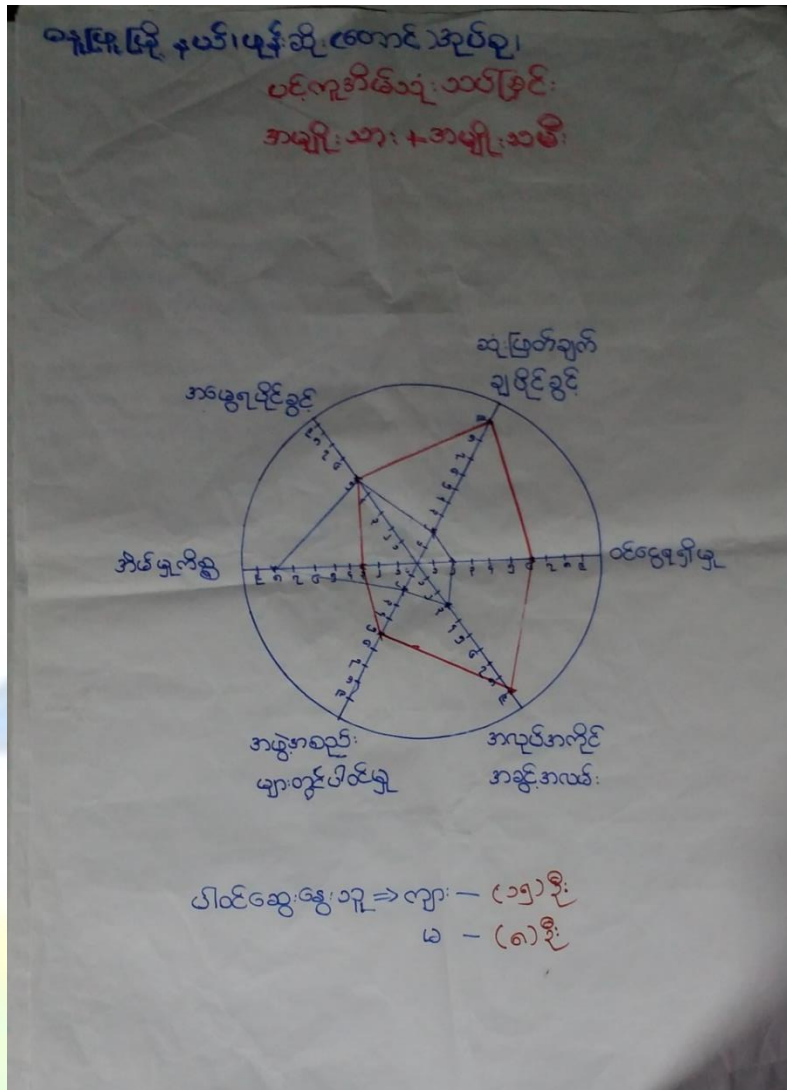 ဓနုဖြူမြို့နယ်၊ ဟုန်းဆိုး (တောင်) အုပ်စု၊
ပင့်ကူအိမ်သုံးသပ်ခြင်း
အမျိုးသား + အမျိုးသမီး
ဆုံးဖြတ်ချက်
ချပိုင်ခွင့်
အမွေရပိုင်ခွင့်
ဝင်ငွေရရှိမှု
အိမ်မှုကိစ္စ
အဖွဲ့အစည်း
များတွင်ပါဝင်မှု
အလုပ်အကိုင်
အခွင့်အလမ်း
ပါဝင်ဆွေးနွေးသူ ⇒ ကျား – (၁၅) ဦး
မ – (၈) ဦး